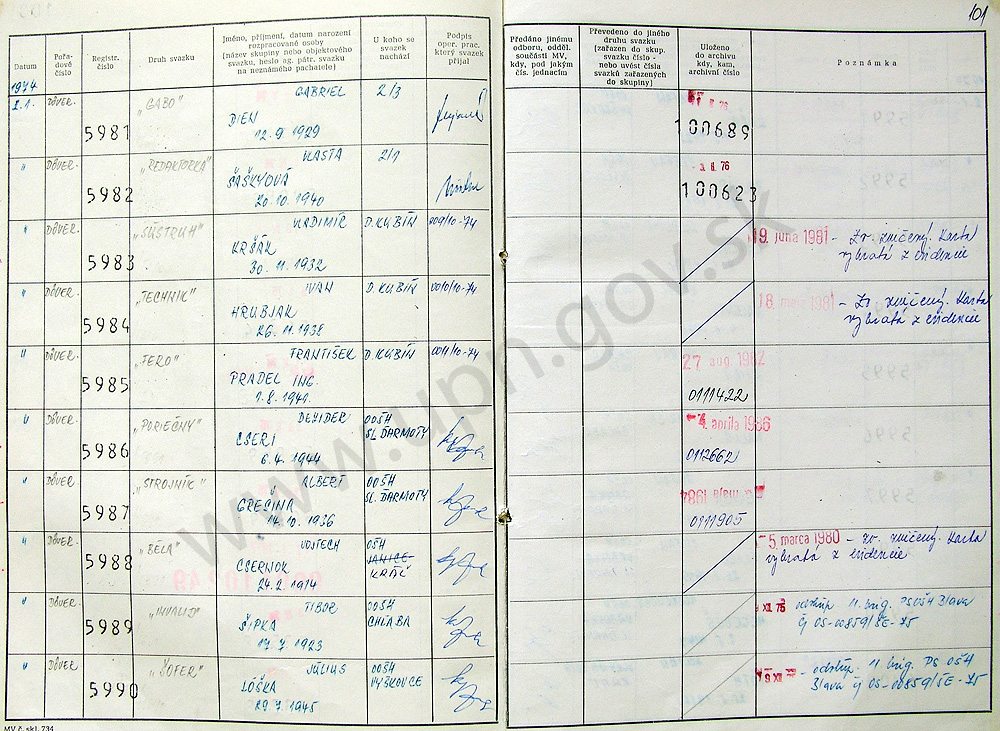 101
Datum
Pořa-
dové
číslo
Registr.
číslo
Druh svazku
Jméno, příjmení, datum narození
rozpracované osoby
(název skupiny nebo objektového
svazku, heslo ag. pátr. svazku
na neznámého pachatele)
U koho se
svazek
nachází
Podpis
oper. prac.
který svazek
přijal
Předáno jinému
odboru, odděl.
součásti MV,
kdy, pod jakým
čís. jednacím
Převedeno do jiného
druhu svazku
(zařazen do skup.
svazku číslo -
nebo uvést čísla
svazků zařazených
do skupiny)
Uloženo
do archivu
kdy, kam,
archivní číslo
Poznámka
1974
2.1. DÔVER. 5981 „GABO" GABRIEL 2/3
DIEN
12.9 1929
76
100689
" DÔVER. 5982 „REDAKTORKA" VLASTA 2/1
ŠAŠKYOVÁ
20.10.1940
3. II. 76
100623
" DÔVER. 5983 „SÚSTRUH" VLADIMÍR D. KUBÍN 009/10-74
KRŠÁK
30.11.1932
19. júna 1981 - Zv. zničený. Karta
vybratá z evidencie
" DÔVER. 5984 „TECHNIK" IVAN D. KUBÍN 0010/10-74
HRUBJAK
26.11.1938
18. 1981 - Zv. zničený. Karta
vybratá z evidencie
" DÔVER. 5985 „FERO" FRANTIŠEK D. KUBÍN 0011/10-74
PRADEL ING.
1.8.1941.
27 aug. 1982
0111422
" DÔVER. 5986 „PORIEČNY" DEZIDER OOŠH
SL. ĎARMOTY
CSERI
6.4.1944
4. apríla 1986
0112662
" DÔVER. 5987 „STROJNÍK" ALBERT OOŠH
SL. ĎARMOTY
GREČINA
14.10.1936
mája 1984
0111905
" DÔVER. 5988 „BÉLA" VOJTECH OŠH
CSERNOK
KRÁĽ
24.2.1914
5. marca 1980 - zv. zničený. Karta
vybratá z evidencie
" DÔVER. 5989 „INVALID" TIBOR OOŠH
CHĽABA
ŠIPKA
17.7.1923
XII. 75 odstúp. 11. brig. PSOŠH Blava
čj OS-00859/ŠE-75
" DÔVER 5990 „ŠOFÉR" JÚLIUS OOŠH
VYŠKOVCE
LÓŠKA
29.7.1945
XII - odstúp. 11 brig. PS OŠH
Blava čj OS-00859/ŠE-75
MV č. skl. 734
www.upn.gov.sk